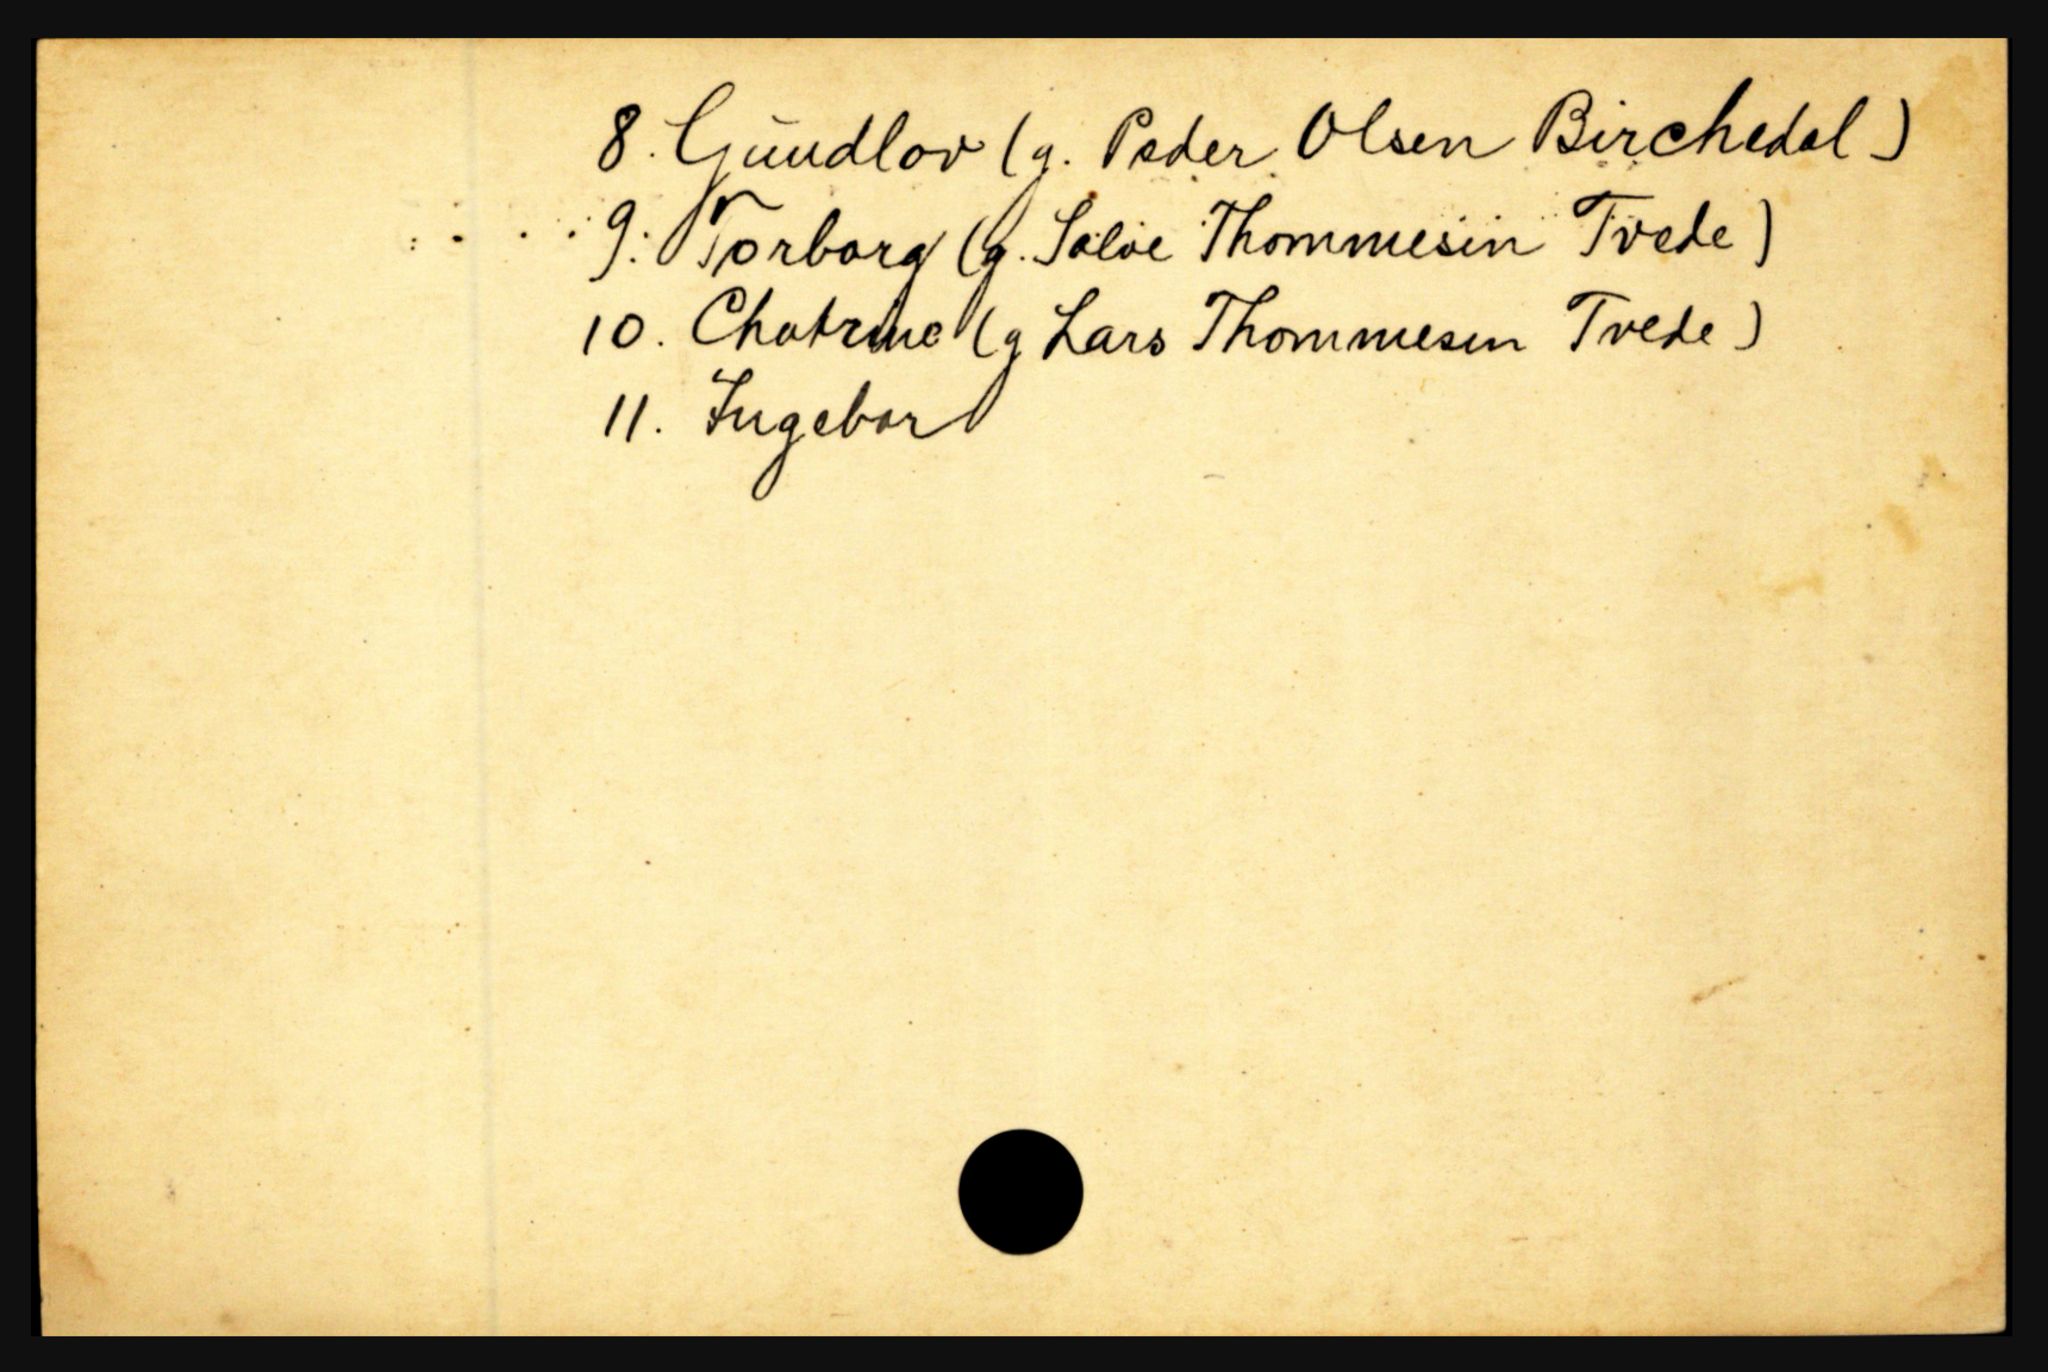 8. Gundlov (g. Peder Olsen Birchedal)
9. Torborg (g. Salve Thommesen Tvede)
10. Chatrine (g Lars Thommesen Tvede)
11. Ingebor